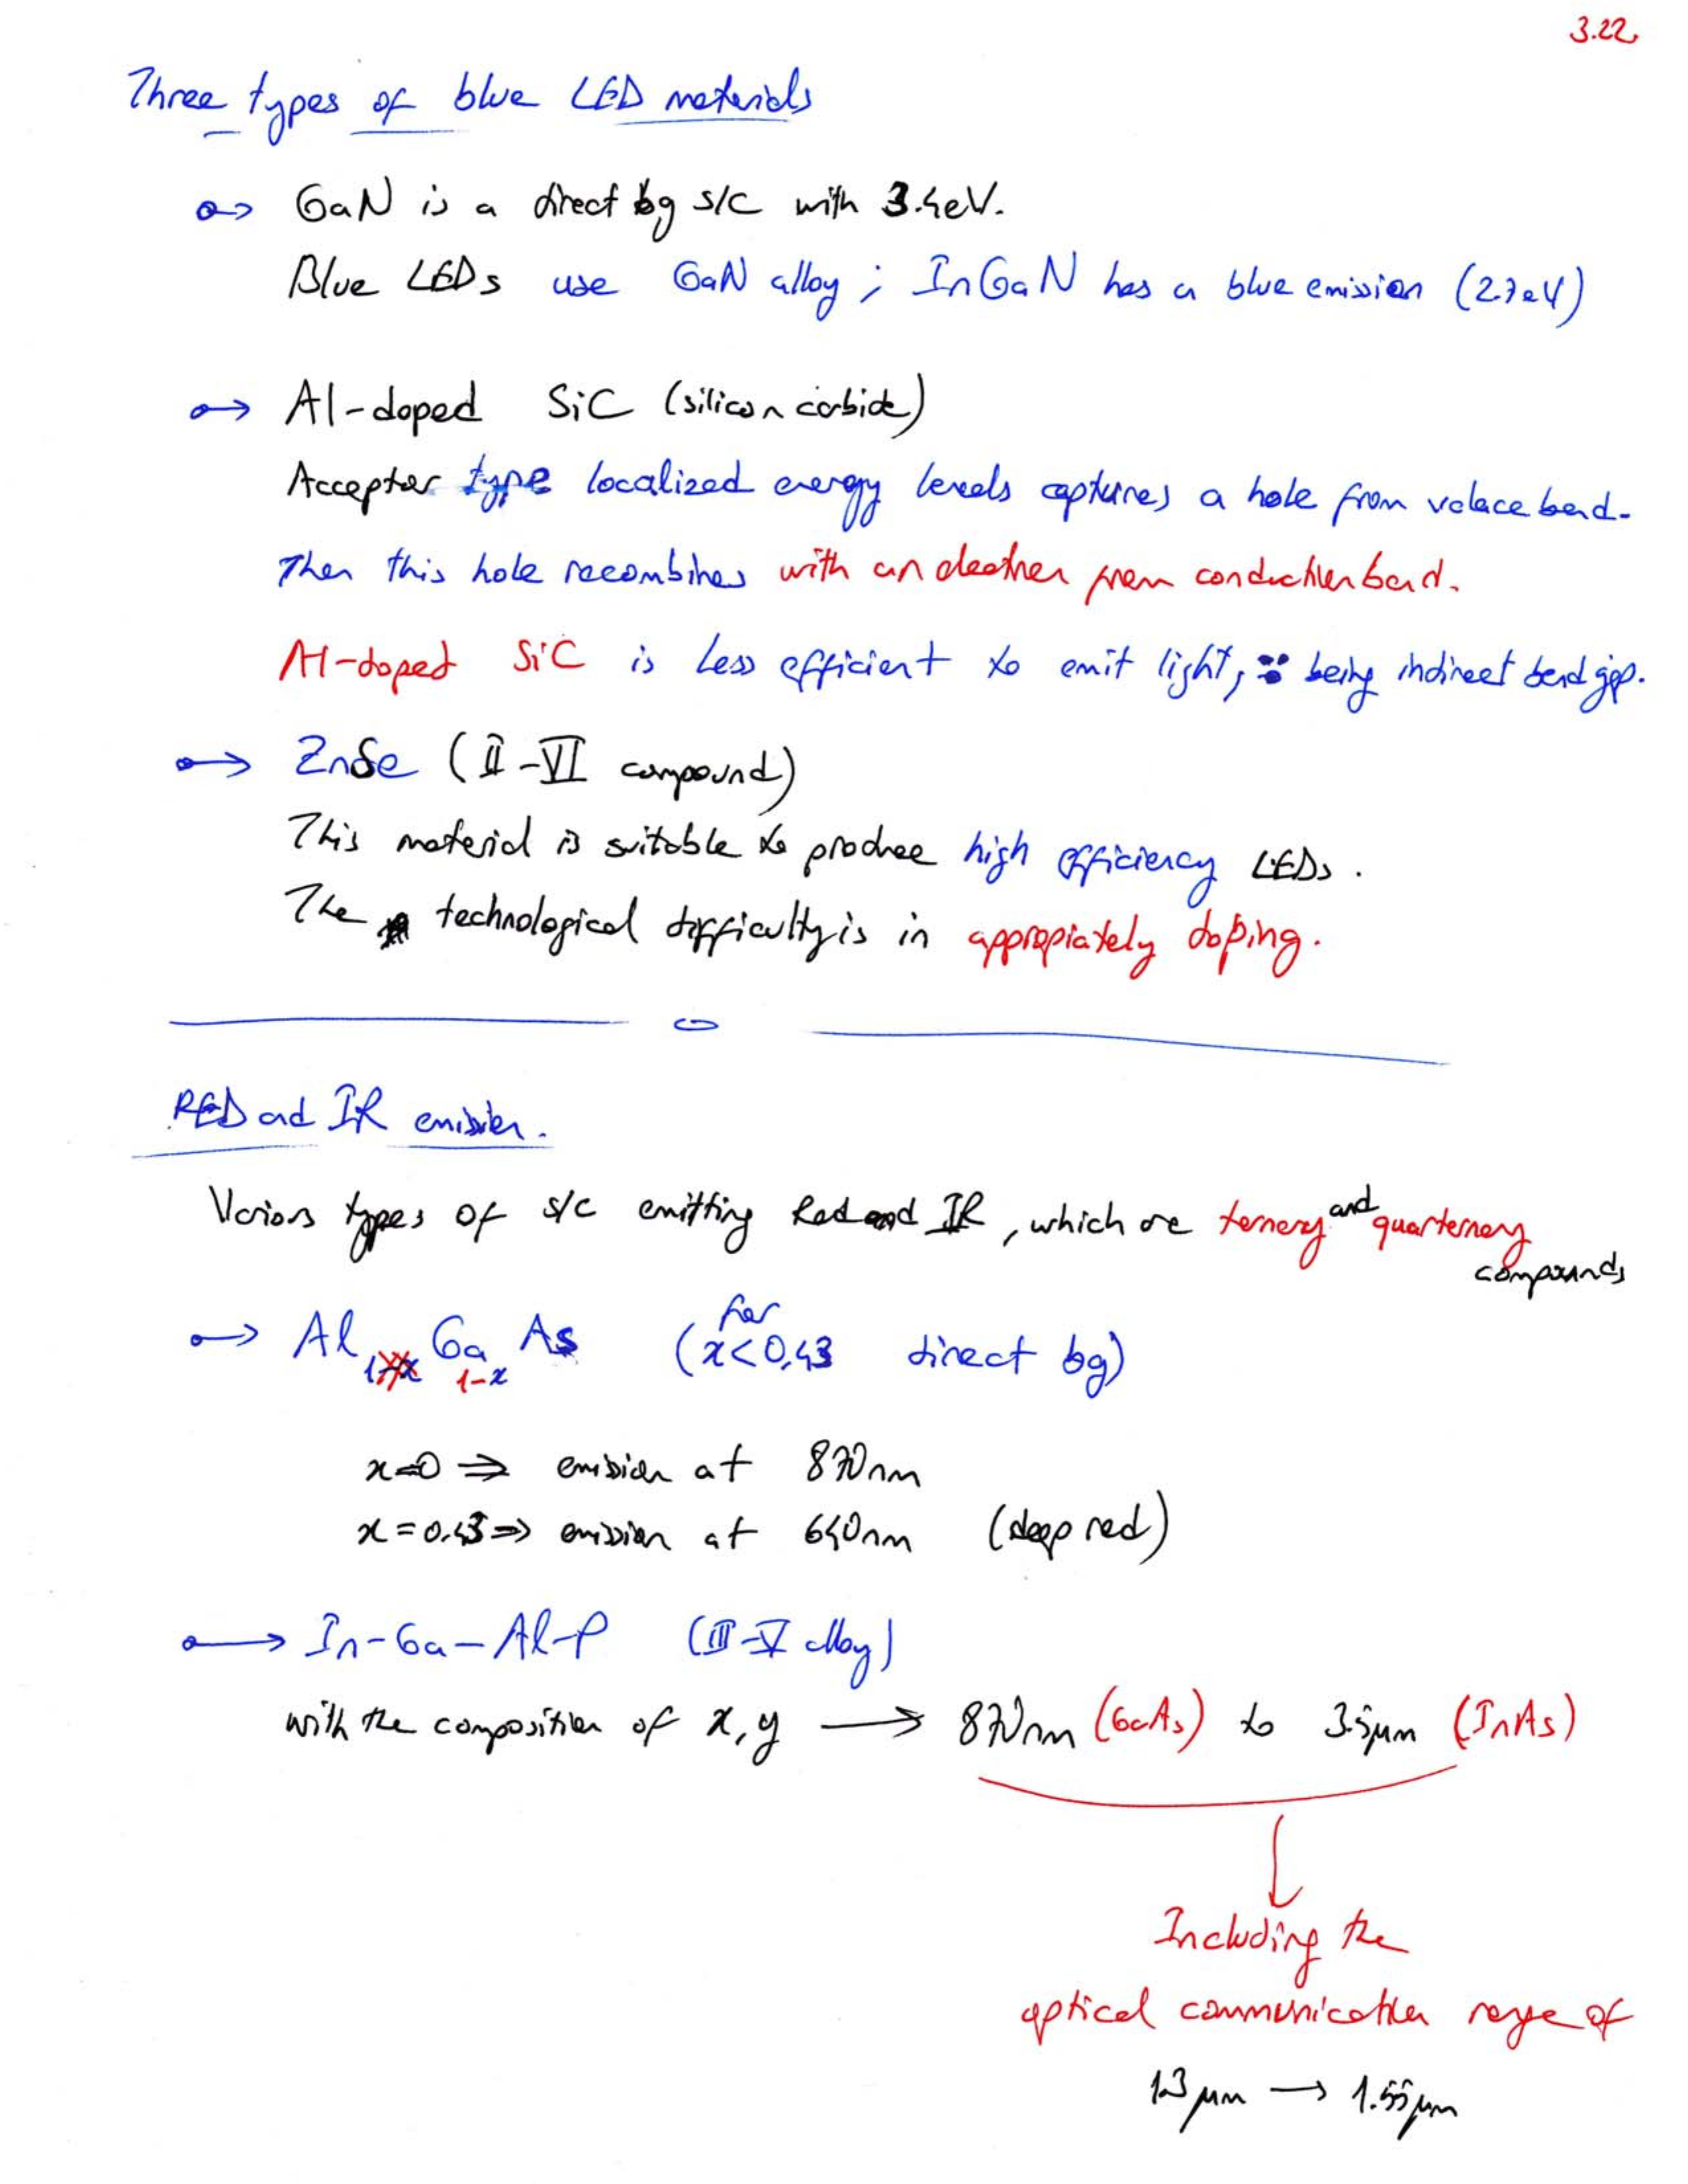 3.22.
Three types of blue LED materials
GaN is a direct bg s/c with 3.4eV.
Blue LEDs use GaN alloy; InGaN has a blue emission (2.7eV)
Al-doped SiC (silicon carbide)
Acceptor type localized energy levels captures a hole from valace band.
Then this hole recombines with an electron from conduction band.
Al-doped SiC is less efficient to emit light, being indirect band gap.
ZnSe (II-VI compound)
This material is suitable to produce high efficiency LEDs.
The technological difficulty is in appropiately doping.
RED and IR emission.
Various types of s/c emitting Red and IR, which are ternery and quarternery
compounds
Al Ga 1-x As (for x<0,43 direct bg)
x=0 ⇒ emission at 870nm
x=0.43 ⇒ emission at 640nm (deep red)
In-Ga-Al-P (III-V alloy)
with the composition of x, y → 870nm (GaAs) to 3.5µm (InAs)
Including the
optical communication range of
1.3µm → 1.55µm